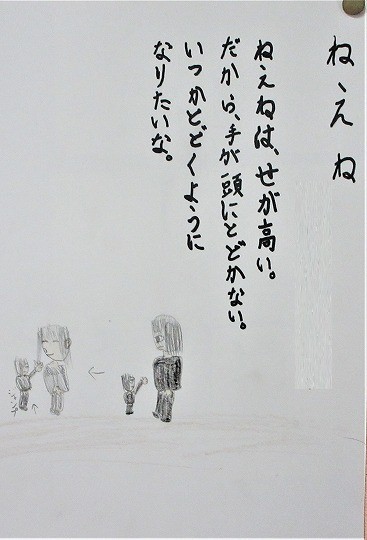 ねえね
ねえねは、せが高い。
だから、手が頭にとどかない。
いつかとどくように
なりたいな。
ジャンプ